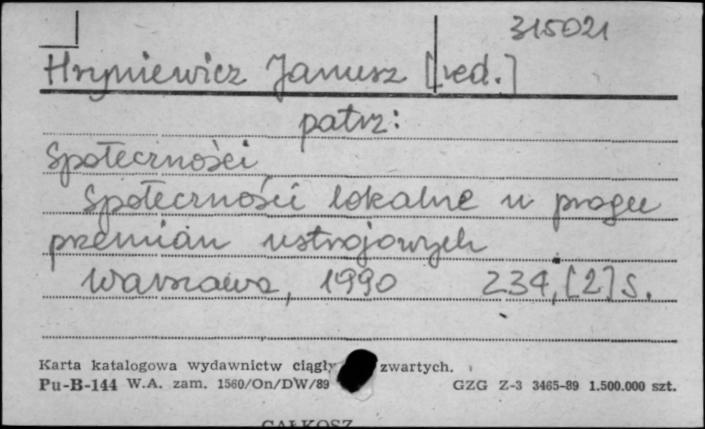 315021
Hryniewicz Janusz [red.]
patrz:
Społeczności
Społeczności lokalne u progu
przemian ustrojowych
Warszawa, 1990 234,[2]s.
Karta katalogowa wydawnictw ciągły zwartych.
Pu-B-144 W.A. zam. 1560/On/DW/89 GZG Z-3 3465-89 1.500.000 szt.